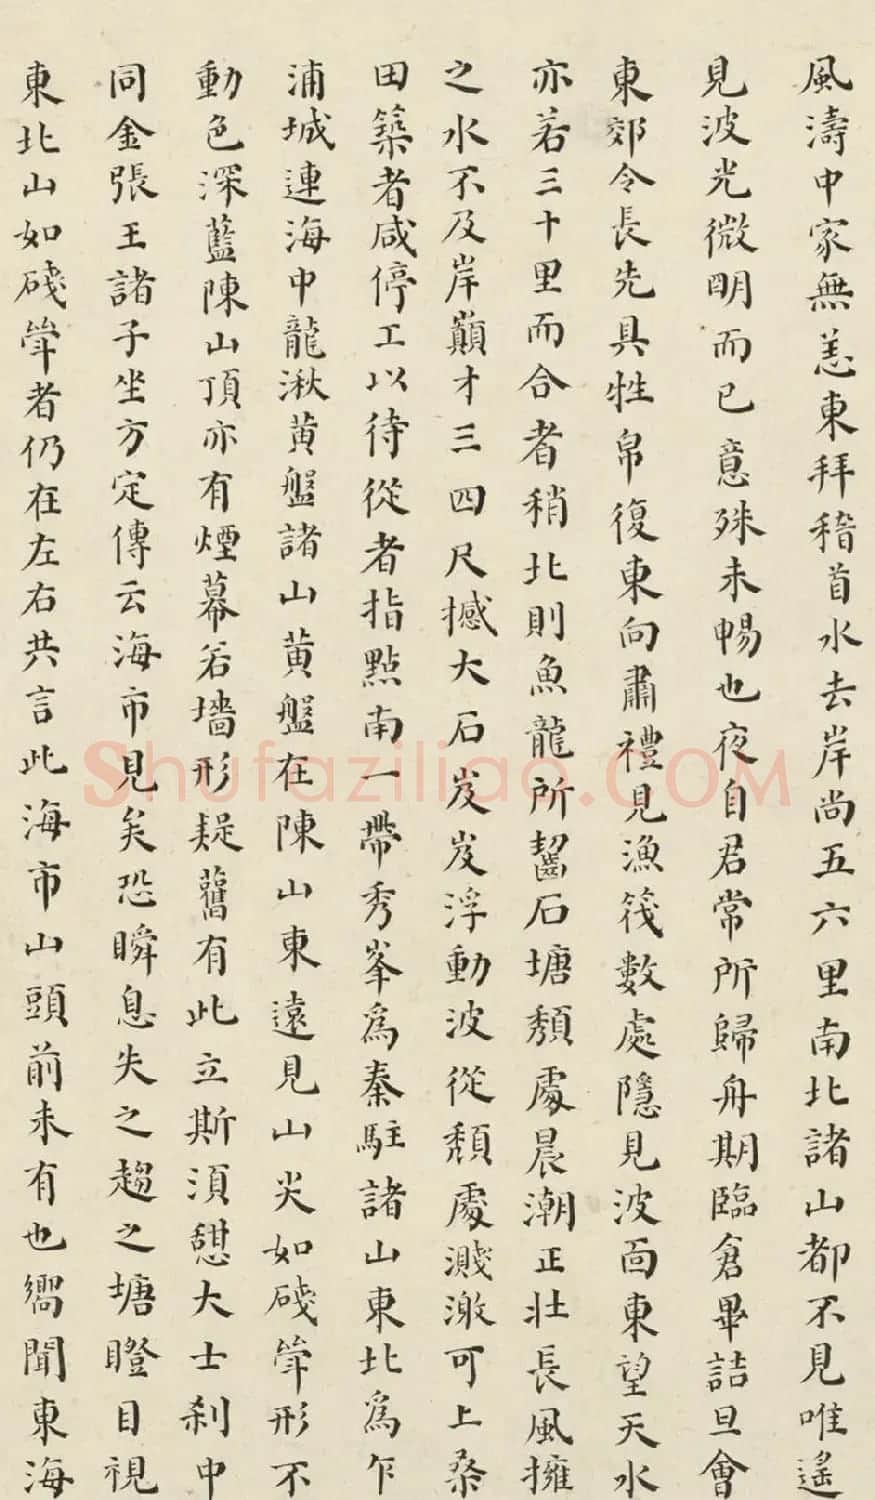 風濤中家無恙東拜稽首水去岸尚五六里南北諸山都不見唯遙
見波光微明而已意殊未暢也夜自君常所歸舟期臨倉畢詰旦會
東郊令長先具牲帛復東向肅禮見漁筏數處隱見波面東望天水
亦若三十里而合者稍北則魚龍所齧石塘頹處晨潮正壯長風擁
之水不及岸巔才三四尺撼大石岌岌浮動波從頹處濺激可上桑
田築者咸停工以待從者指點南一帶秀峯為秦駐諸山東北為乍
浦城連海中龍湫黃盤諸山黃盤在陳山東遠見山尖如碊聳形不
動色深藍陳山頂亦有煙幕若墻形疑舊有此立斯須憇大士刹中
同金張王諸子坐方定傳云海市見矣恐瞬息失之趨之塘瞪目視
東北山如碊聳者仍在左右共言此海市山頭前未有也嚮聞東海
Shufaziliao.COM